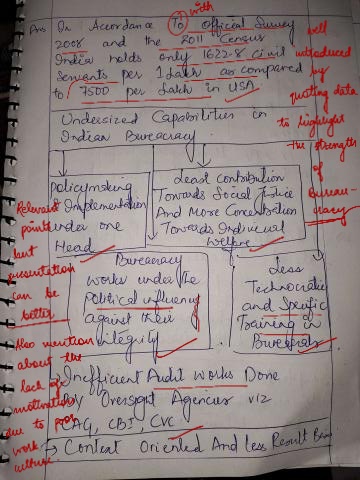 Ans In Accordance To Official Survey
with
2008 and the 2011 Census
India holds only 1622-8 civil
Servants per 1 lakh as compared
to 7500 per lakh in USA.
well
introduced
by
quoting data
to highlight
the strength
of
Bureau-
cracy
Undersized Capabilities in
Indian Bureacracy
Policymaking
& Implementation
under one
Head
Lead Contribution
Towards Social Justice
And More Concentration
Towards Individual
Welfare
Relevant
points
but
presentation
can be
better
Bureacracy
works under the
Political influence
against their
integrity
Less
Technocratic
and Specific
Training in
Also mention
about the
lack of
motivation
due to poor
work
culture
Inefficient Audit works Done
By Oversight Agencies viz
CAG, CBI, CVC
→ Context Oriented And less Result